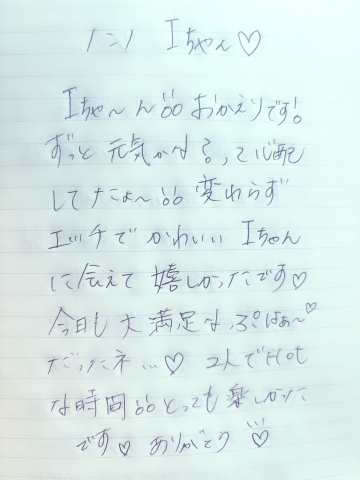 ノンノ Iちゃん♡
Iちゃ〜ん!! おかえりです!
ずっと 元気かな?って心配
してたよ〜!! 変わらず
エッチで かわいい Iちゃん
に会えて 嬉しかったです♡
今日も 大満足な っぷはぁ〜♡
だったネ…♡ 2人でHOT
な時間!! とっても 楽しかった
です♡ ありがとう♡